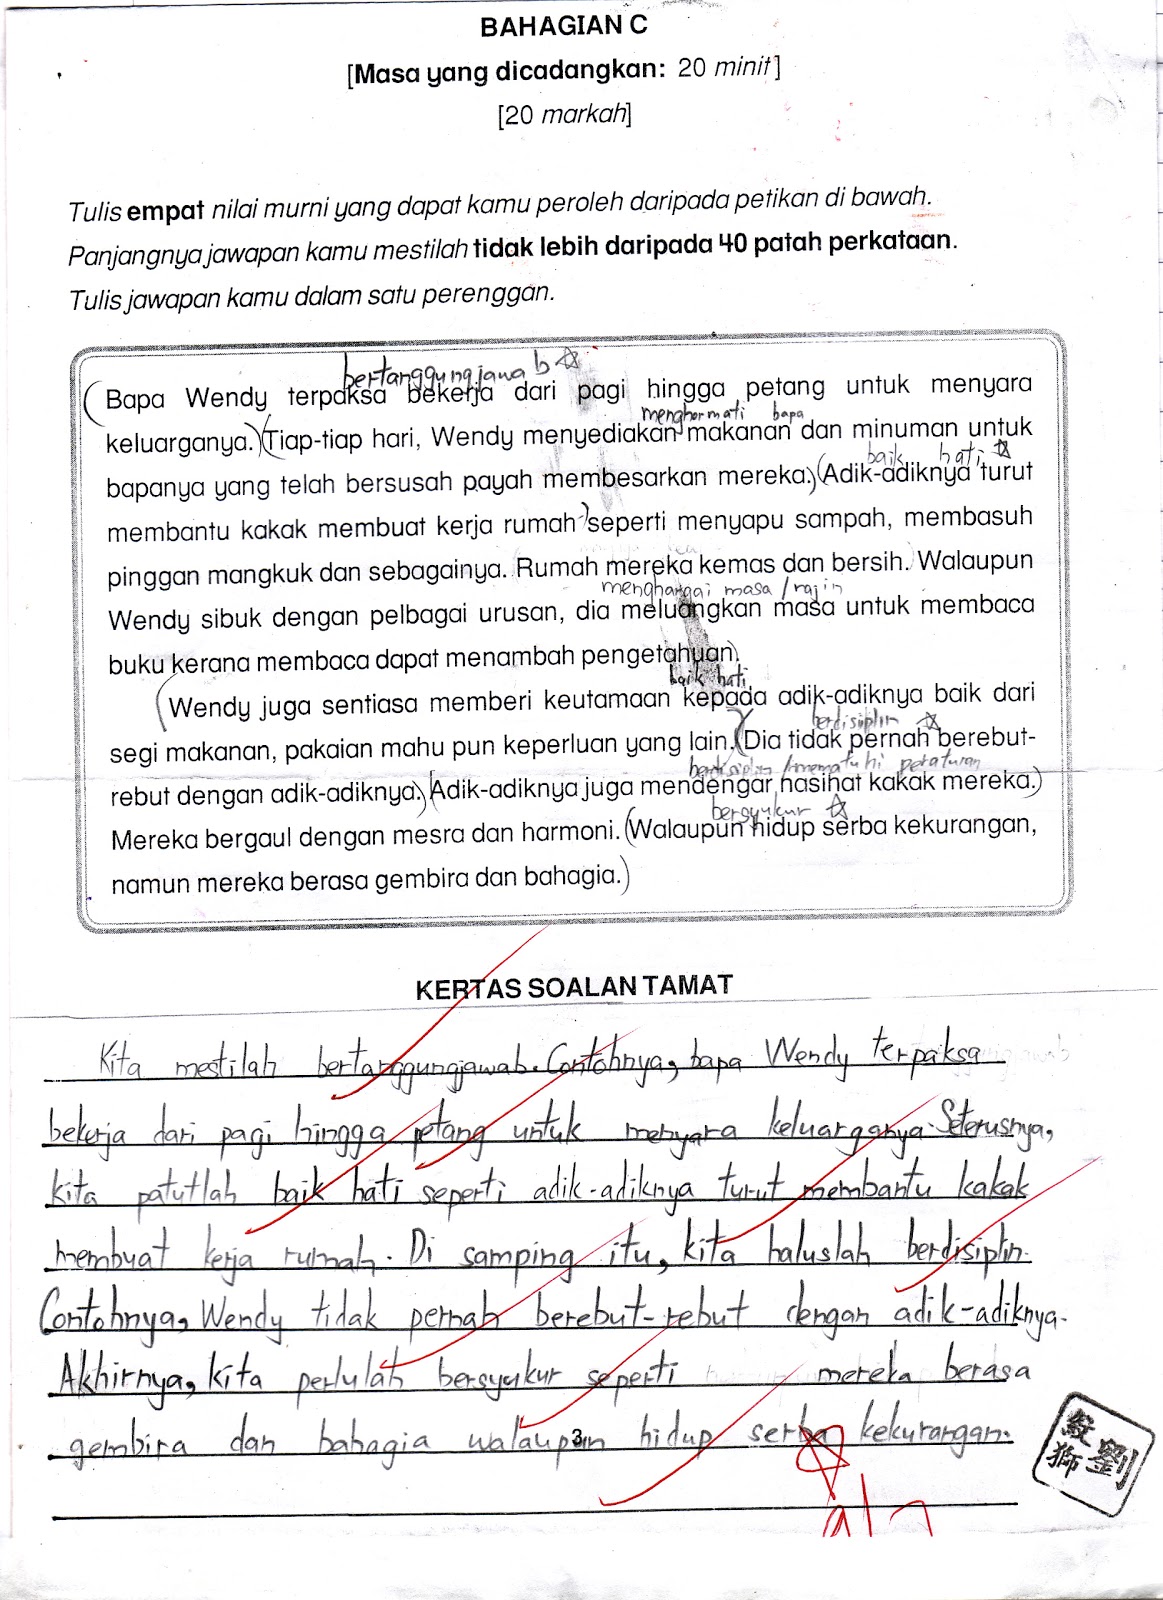 BAHAGIAN C
[Masa yang dicadangkan: 20 minit]
[20 markah]
Tulis empat nilai murni yang dapat kamu peroleh daripada petikan di bawah.
Panjangnya jawapan kamu mestilah tidak lebih daripada 40 patah perkataan.
Tulis jawapan kamu dalam satu perenggan.
bertanggungjawab ☆
(Bapa Wendy terpaksa bekerja dari pagi hingga petang untuk menyara
menghormati bapa
keluarganya.) (Tiap-tiap hari, Wendy menyediakan makanan dan minuman untuk
baik hati ☆
bapanya yang telah bersusah payah membesarkan mereka.) (Adik-adiknya turut
membantu kakak membuat kerja rumah) seperti menyapu sampah, membasuh
pinggan mangkuk dan sebagainya. Rumah mereka kemas dan bersih. Walaupun
menghargai masa / rajin
Wendy sibuk dengan pelbagai urusan, dia meluangkan masa untuk membaca
buku kerana membaca dapat menambah pengetahuan).
baik hati
(Wendy juga sentiasa memberi keutamaan kepada adik-adiknya baik dari
berdisiplin ☆
segi makanan, pakaian mahu pun keperluan yang lain.) (Dia tidak pernah berebut-
berdisiplin / mematuhi peraturan
rebut dengan adik-adiknya.) (Adik-adiknya juga mendengar nasihat kakak mereka.)
bersyukur ☆
Mereka bergaul dengan mesra dan harmoni. (Walaupun hidup serba kekurangan,
namun mereka berasa gembira dan bahagia.)
KERTAS SOALAN TAMAT
Kita mestilah bertanggungjawab. Contohnya, bapa Wendy terpaksa
bekerja dari pagi hingga petang untuk menyara keluarganya. Seterusnya,
kita patutlah baik hati seperti adik-adiknya turut membantu kakak
membuat kerja rumah. Di samping itu, kita haluslah berdisiplin.
Contohnya, Wendy tidak pernah berebut-rebut dengan adik-adiknya.
Akhirnya, kita perlulah bersyukur seperti mereka berasa
gembira dan bahagia walaupun hidup serba kekurangan.
3
劉
獅